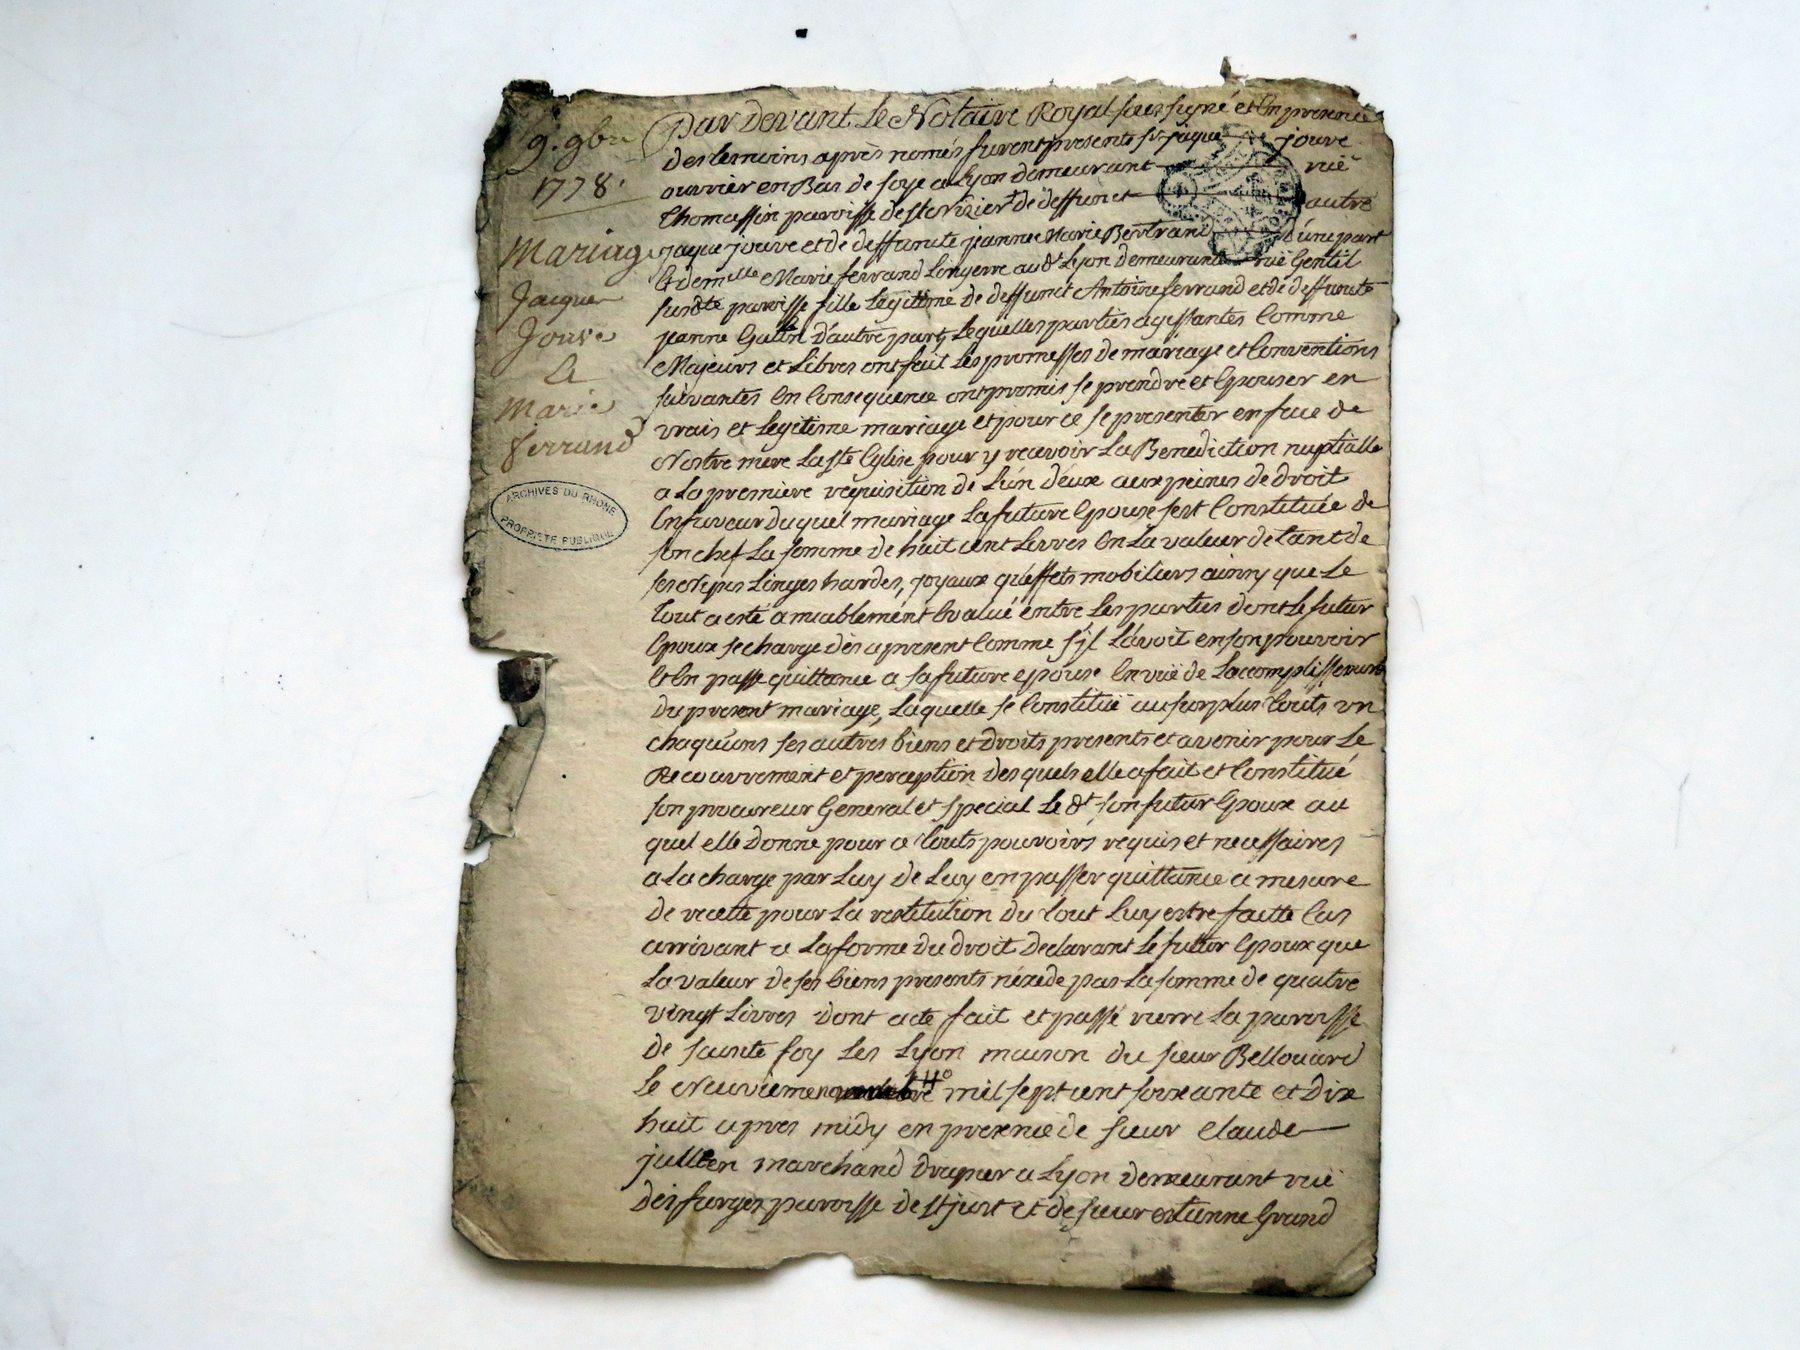 9. 9bre
1778.
Mariage
Jacque
Jouve
a
Marie
Ferrand
ARCHIVES DU RHONE
PROPRIETE PUBLIQUE
Par Devant Le Notaire Royal sousigné et En presence
des temoins après només furent presents sr. jaque jouve
ouvrier en Bas de soye a Lyon demeurant rüe
Thomassin paroisse de st de deffunct autre
jaque jouve et de deffuncte jeanne Marie Bertrand d'une part
Et demlle Marie ferrand Lingerre au dt Lyon demeurante rüe Gentil
susdte paroisse fille Legitime de deffunct Antoine ferrand et de deffuncte
jeanne d'autre part, Lequelles parties agissantes Comme
Majeurs et Libres ont fait Les promesses de mariage et Conventions
suivantes En Consequence ont promis se prendre et Epouser en
vrais et Legitime mariage et pour ce se presenter en face de
Nostre mere La ste Eglise pour y recevoir La Benediction nuptialle
a La premiere requisition de L'un d'eux aux peines de droit
En faveur du quel mariage La future Epouse s'est Constituée de
son chef La somme de huit cent Livres En La valeur de tant de
ses Nipes Linges hardes, joyaux qu'effets mobiliers ainsy que Le
tout a esté amiablement Evalué entre Les parties dont Le futur
Epoux se charge dès apresent Comme s'jl L'avoit en son pouvoir
Et En passe quittance a sa future epouse En vüe de L'accomplissement
Du present mariage, Laquelle se Constitüe au surplus touts un
chaquuns ses autres biens et Droits presents et avenir pour Le
Recouvrement et perception desquels elle a fait et Constitué
son procureur General et special Le dt son futur Epoux au
quel elle Donne pour ce touts pouvoirs requis et necessaires
a La charge par Luy de Luy en passer quittance a mesure
de recette pour La restitution du tout Luy estre faitte Cas
arrivant a La forme du droit Declarant Le futur Epoux que
La valeur de ses biens presents n'exede pas La somme de quatre
vingt Livres dont acte fait et passé La paroisse
de sainte foy Les Lyon maison du sieur Bellouard
Le Neuvieme mil sept cent soixante et Dix
huit apres midy en presence de sieur Claude
jullien marchand drapier a Lyon demeurant rüe
des farges paroisse de st just et de sieur estienne Grand